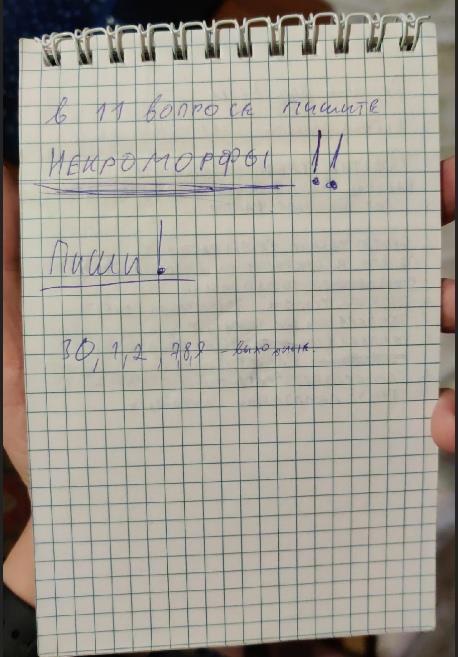 в 11 вопросе пишите
НЕКРОМОРФЫ !!
Пиши!
30, 1, 2, 7,8,9 - выходные.